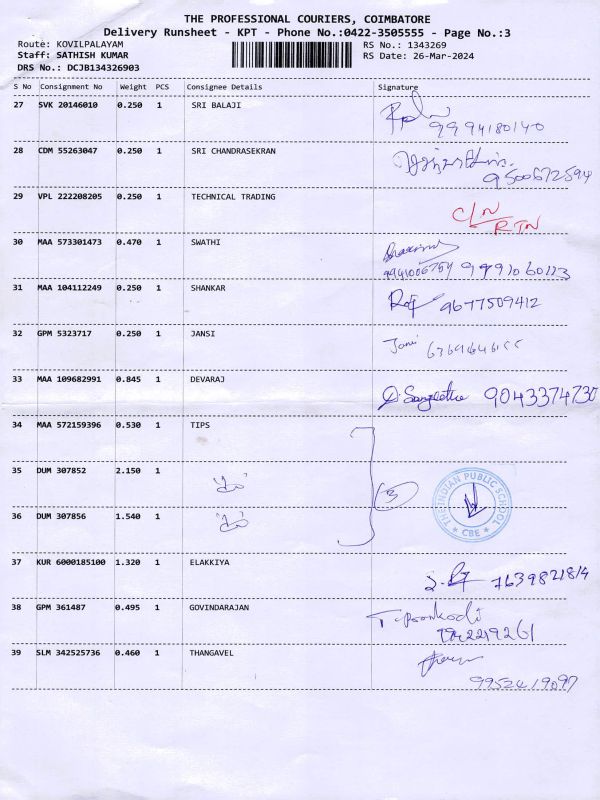 THE PROFESSIONAL COURIERS, COIMBATORE
Delivery Runsheet - KPT - Phone No.:0422-3505555 - Page No.:3
Route: KOVILPALAYAM RS No.: 1343269
Staff: SATHISH KUMAR RS Date: 26-Mar-2024
DRS No.: DCJB134326903
S No Consignment No Weight PCS Consignee Details Signature
27 SVK 20146010 0.250 1 SRI BALAJI
9994180140
28 CDM 55263047 0.250 1 SRI CHANDRASEKRAN
9500672594
29 VPL 222208205 0.250 1 TECHNICAL TRADING
C/N
RTN
30 MAA 573301473 0.470 1 SWATHI
31 MAA 104112249 0.250 1 SHANKAR
9677509412
32 GPM 5323717 0.250 1 JANSI
33 MAA 109682991 0.845 1 DEVARAJ
D. Sangeetha 9043374730
34 MAA 572159396 0.530 1 TIPS
35 DUM 307852 2.150 1
3
THE INDIAN PUBLIC SCHOOL
CBE
36 DUM 307856 1.540 1
37 KUR 6000185100 1.320 1 ELAKKIYA
7639821814
38 GPM 361487 0.495 1 GOVINDARAJAN
T. Poonkodi
39 SLM 342525736 0.460 1 THANGAVEL
9952419097